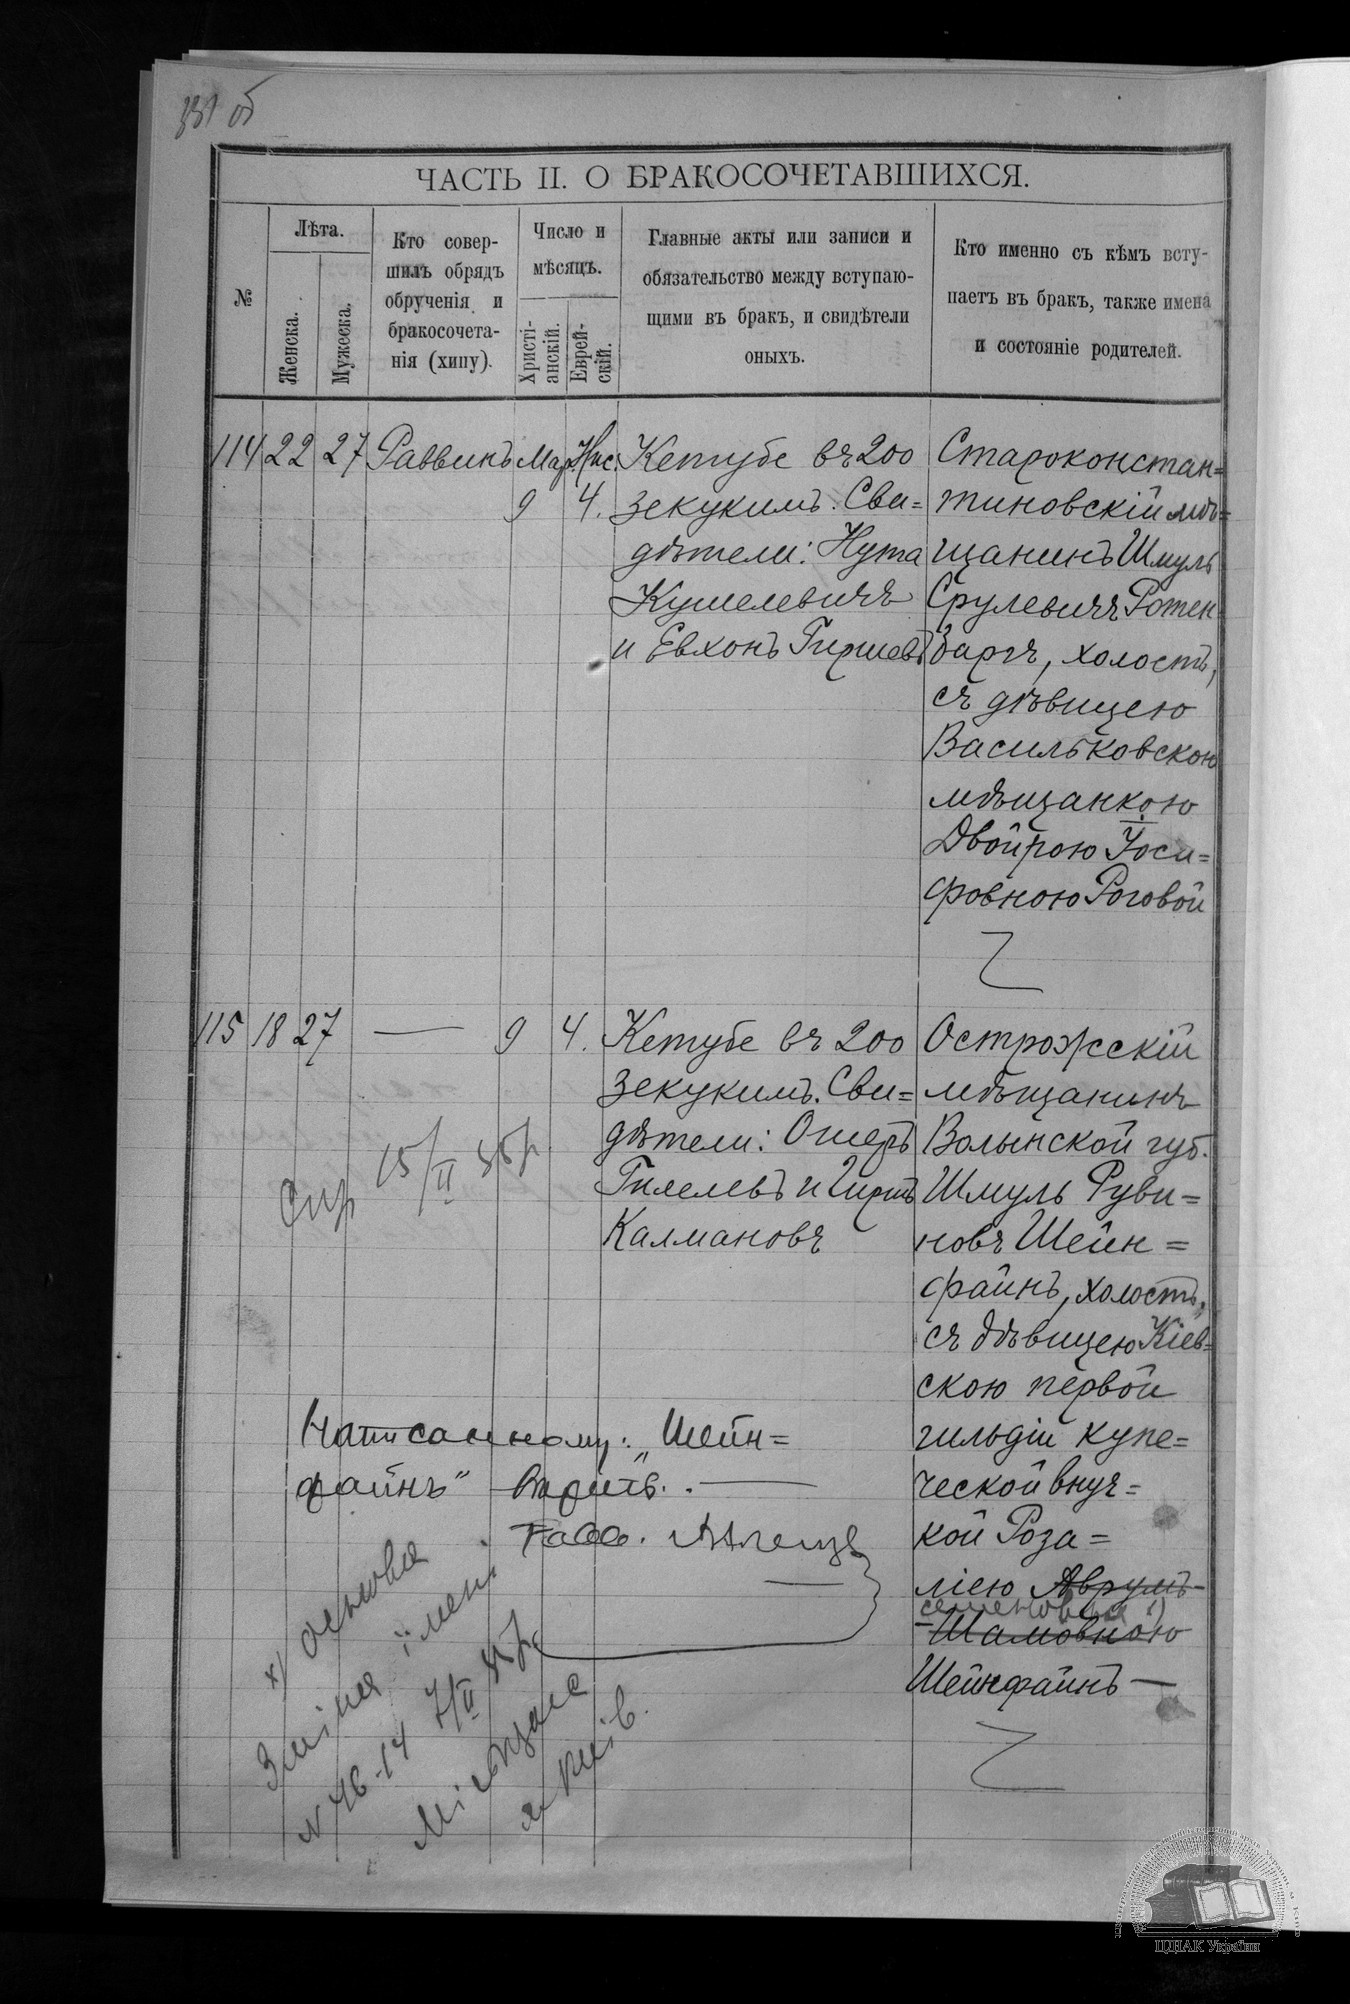 331 об
ЧАСТЬ II. О БРАКОСОЧЕТАВШИХСЯ.
№
Лѣта.
Женска.
Мужеска.
Кто совер-
шилъ обрядъ
обрученія и
бракосочета-
нія (хипу).
Число и
мѣсяцъ.
Христі-
анскій.
Еврей-
скій.
Главные акты или записи и
обязательство между вступаю-
щими въ бракъ, и свидѣтели
оныхъ.
Кто именно съ кѣмъ всту-
паетъ въ бракъ, также имена
и состояніе родителей.
114 22 27 Раввинъ Мар. Нис.
9 4.
Кетубе въ 200
зекукимъ. Сви=
дѣтели: Нута
Кушелевичъ
и Евхонъ Гиршевъ
Староконстан=
тиновскій мѣ=
щанинъ Шмуль
Срулевичъ Ротен
баргъ, холостъ,
съ дѣвицею
Васильковскою
мѣщанкою
Двойрою Іоси=
фовною Роговой
115 18 27 — 9 4.
Кетубе въ 200
зекукимъ. Сви=
дѣтели: Ошеръ
Гилелевъ и Гиршъ
Калмановъ
Острожскій
мѣщанинъ
Волынской губ.
Шмуль Руви=
новъ Шейн=
файнъ, холостъ,
съ дѣвицею Кіев=
скою первой
гильдіи купе=
ческой внуч=
кой Роза=
ліею Аврумъ-
семеновна
-Шамовною
Шейнфайнъ —
15/II
Написанному: „Шейн=
файнъ" вѣрить. —
Рабб.
Зміна імені
N 46-14 7/II
м. Київ.
ЦДІАК України